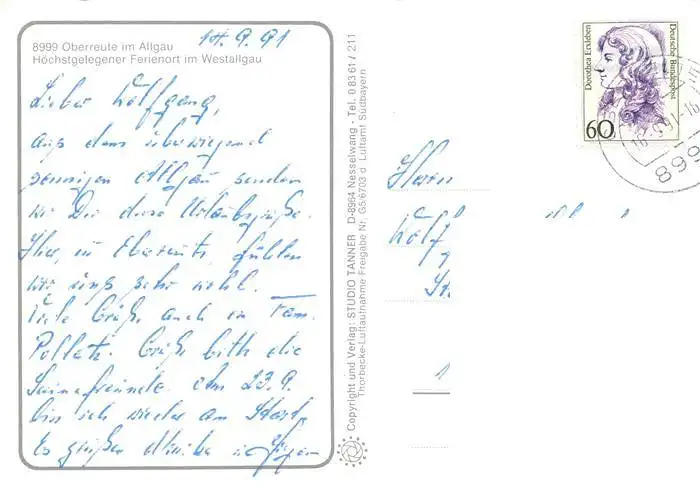 8999 Oberreute im Allgäu
Höchstgelegener Ferienort im Westallgau
14.9.91
Lieber Wolfgang,
aus dem überwiegend
sonnigen Allgäu senden
wir Dir diese Urlaubsgrüße.
Hier, in Oberreute, fühlen
wir uns sehr wohl.
Viele Grüße auch an Fam.
Pollak. Grüße bitte die
Saunafreunde. Am 23.9.
bin ich wieder am Start.
Es grüßen Monika u. Jürgen
Copyright und Verlag: STUDIO TANNER D-8964 Nesselwang - Tel. 0 83 61 / 211
Thorbecke-Luftaufnahme Freigabe Nr. G5/6703 d Luftamt Südbayern
Dorothea Erxleben
Deutsche Bundespost
60
899
Herrn
Wolfg
St.
1